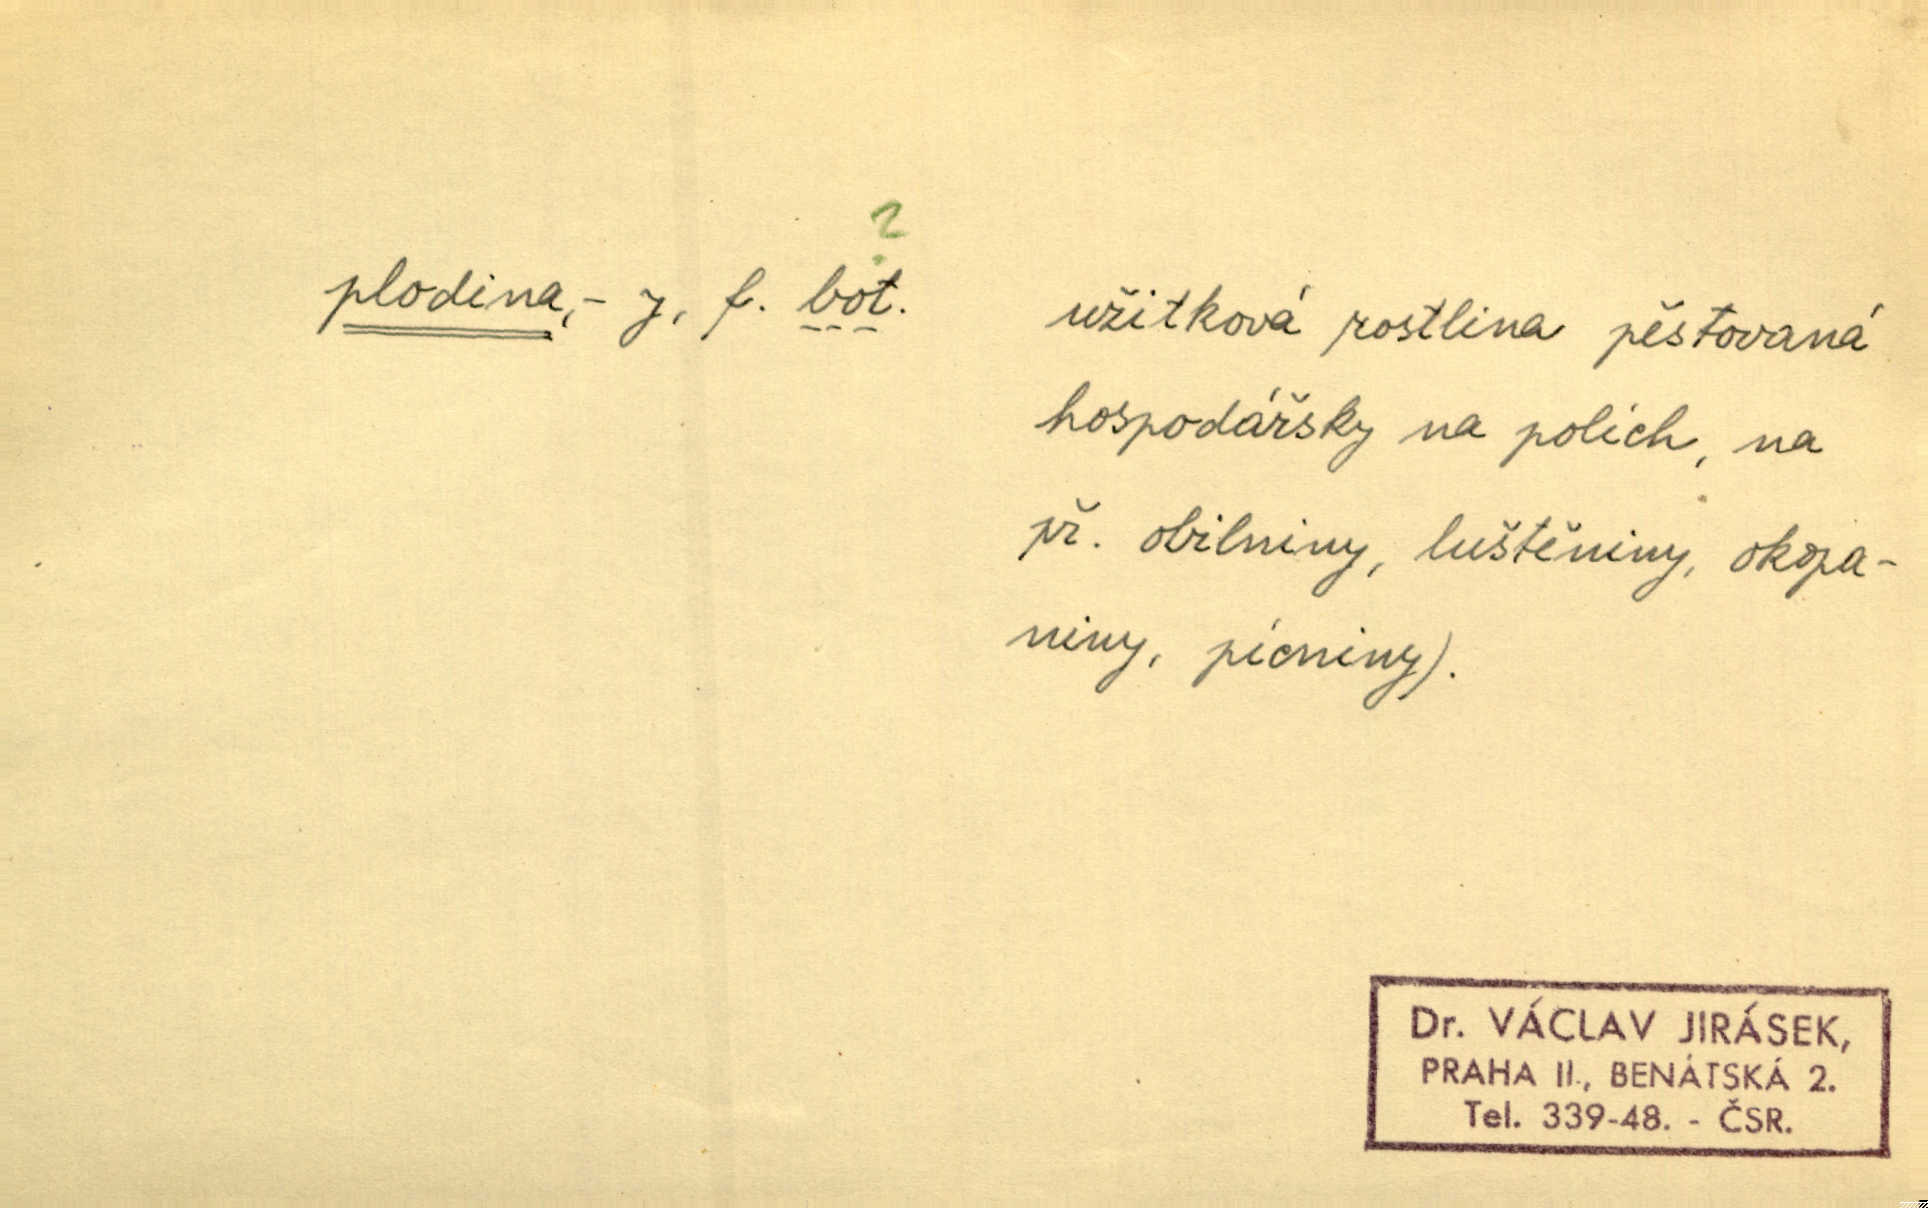 ?
plodina,- y, f. bot.
užitková rostlina pěstovaná
hospodářsky na polích, na
př. obilniny, luštěniny, okopa-
niny, pícniny).
Dr. VÁCLAV JIRÁSEK,
PRAHA II., BENÁTSKÁ 2.
Tel. 339-48. - ČSR.